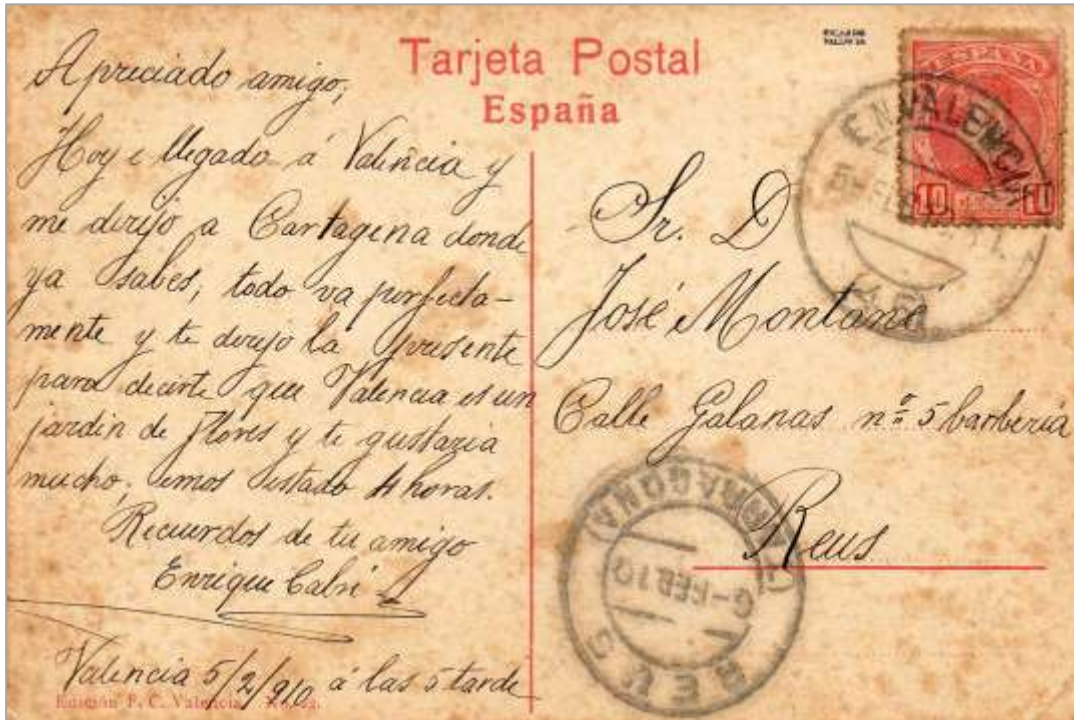 Tarjeta Postal
España
Apreciado amigo,
Hoy e llegado á Valencia y
me dirijo a Cartagena donde
ya sabes, todo va perfecta-
mente y te dirijo la presente
para decirte que Valencia es un
jardin de flores y te gustaria
mucho, emos estado 4 horas.
Recuerdos de tu amigo
Enrique Cabré
Valencia 5/2/910 á las 5 tarde
Edición P. C. Valencia
ESPAÑA
10 10
VALENCIA
Sr. D
José Montané
Calle Galanas nº 5 barberia
Reus
REUS
(TARRAGONA)
6-FEB.10